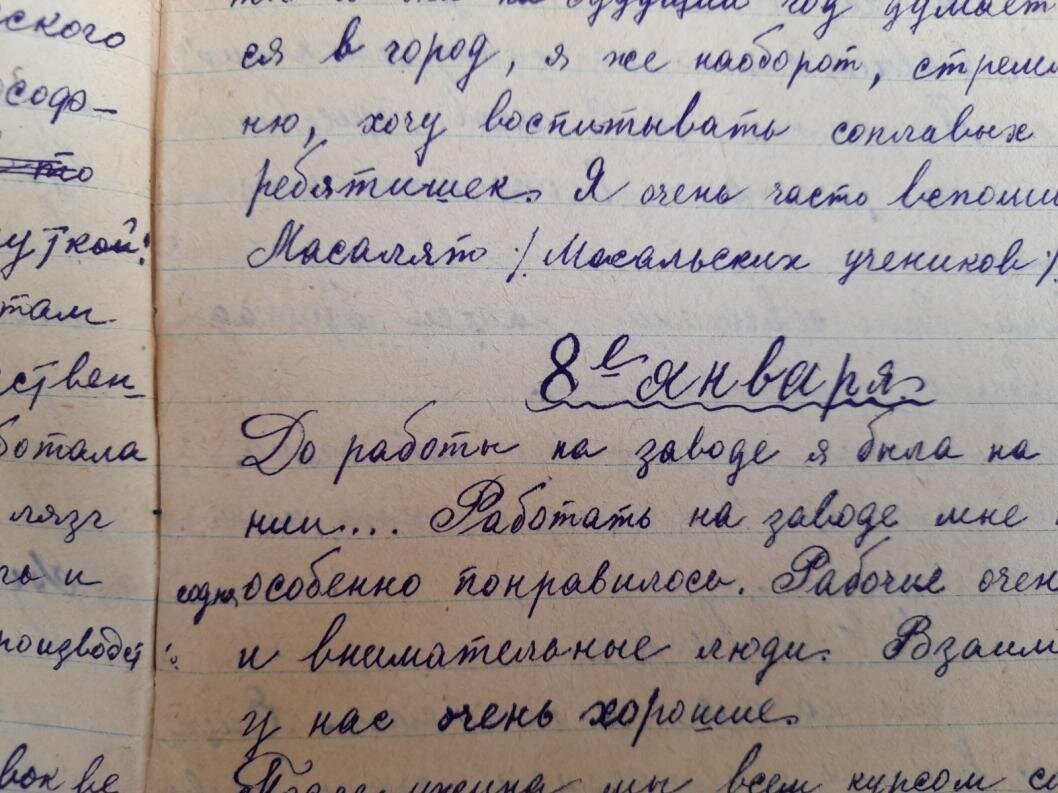 ского
ксодо-
то
уткой!
там
ствен-
ботала
лязг
и
производст
вок ве
на будущий год думает
ся в город, я же наоборот, стреми
ню, хочу воспитывать соплавых
ребятишек. Я очень часто вспоми
Масалято /. Мосальских учеников ./
8е января.
До работы на заводе я была на
нии.... Работать на заводе мне
особенно понравилось. Рабочие очен
и внимательные люди. Взаим
у нас очень хорошие.
ужина мы всем курсом со